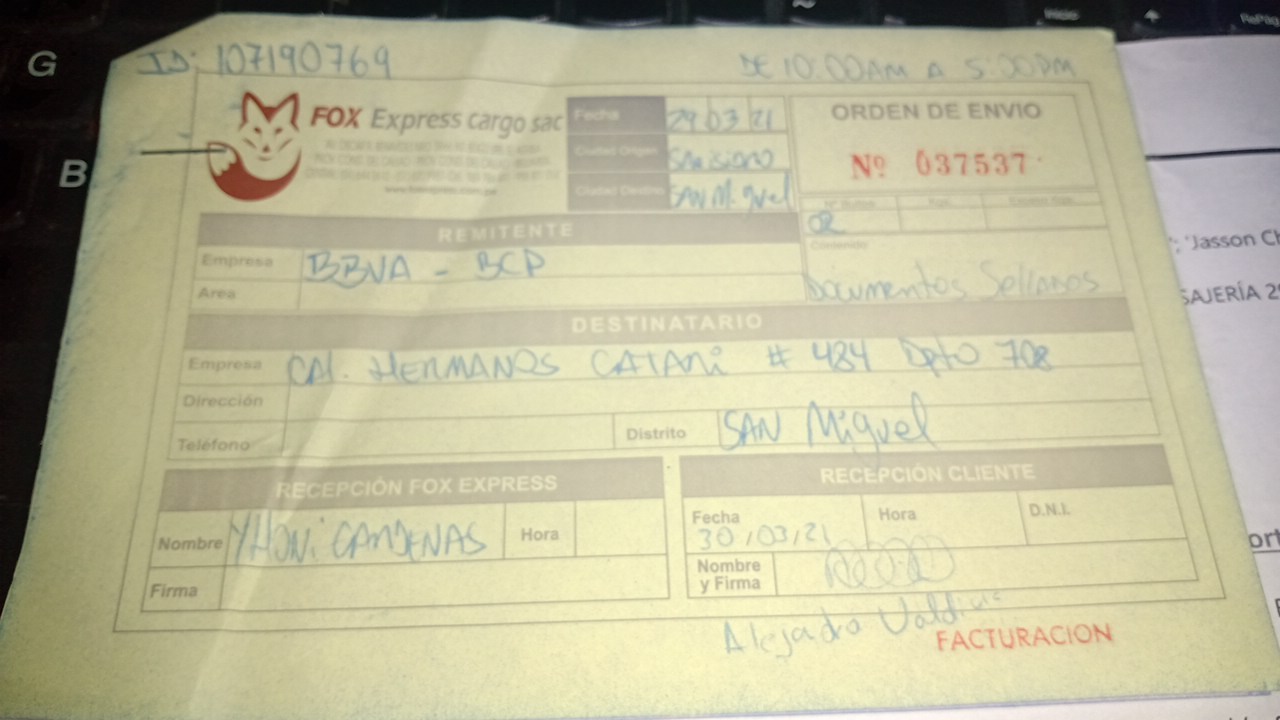 G
B
Inicio
RePág
ID: 107190769
DE 10:00AM A 5:00PM
FOX Express cargo sac
Fecha 29 03 21
Ciudad Origen San isidro
Ciudad Destino SAN Miguel
ORDEN DE ENVIO
Nº 037537
02
Documentos Sellados
REMITENTE
Empresa BBVA - BCP
Area
DESTINATARIO
Empresa CAL. HERMANOS CATARi # 484 Dpto 708
Dirección
Teléfono
Distrito SAN Miguel
RECEPCIÓN FOX EXPRESS
Nombre YHONi CARDENAS Hora
Firma
RECEPCIÓN CLIENTE
Fecha 30/03/21 Hora D.N.I.
Nombre y Firma
Alejandro Valdivia
FACTURACION
'Jasson
SAJERÍA